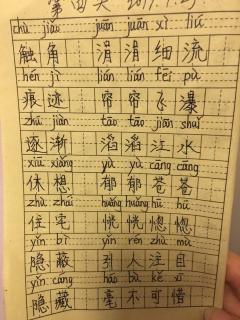 第四天
chù jiǎo juān juān xì liú
触角 涓涓细流
hén jì lián lián fēi pù
痕迹 帘帘飞瀑
zhú jiàn tāo tāo jiān shuǐ
逐渐 滔滔注水
xiū xiǎng yù yù cāng cāng
休想 郁郁苍苍
zhù zhái huǎng huǎng hū hū
住宅 恍恍惚惚
yǐn bì yǐn rén zhù mù
隐蔽 引人注目
yǐn cáng háo bù kě xī
隐藏 毫不可惜